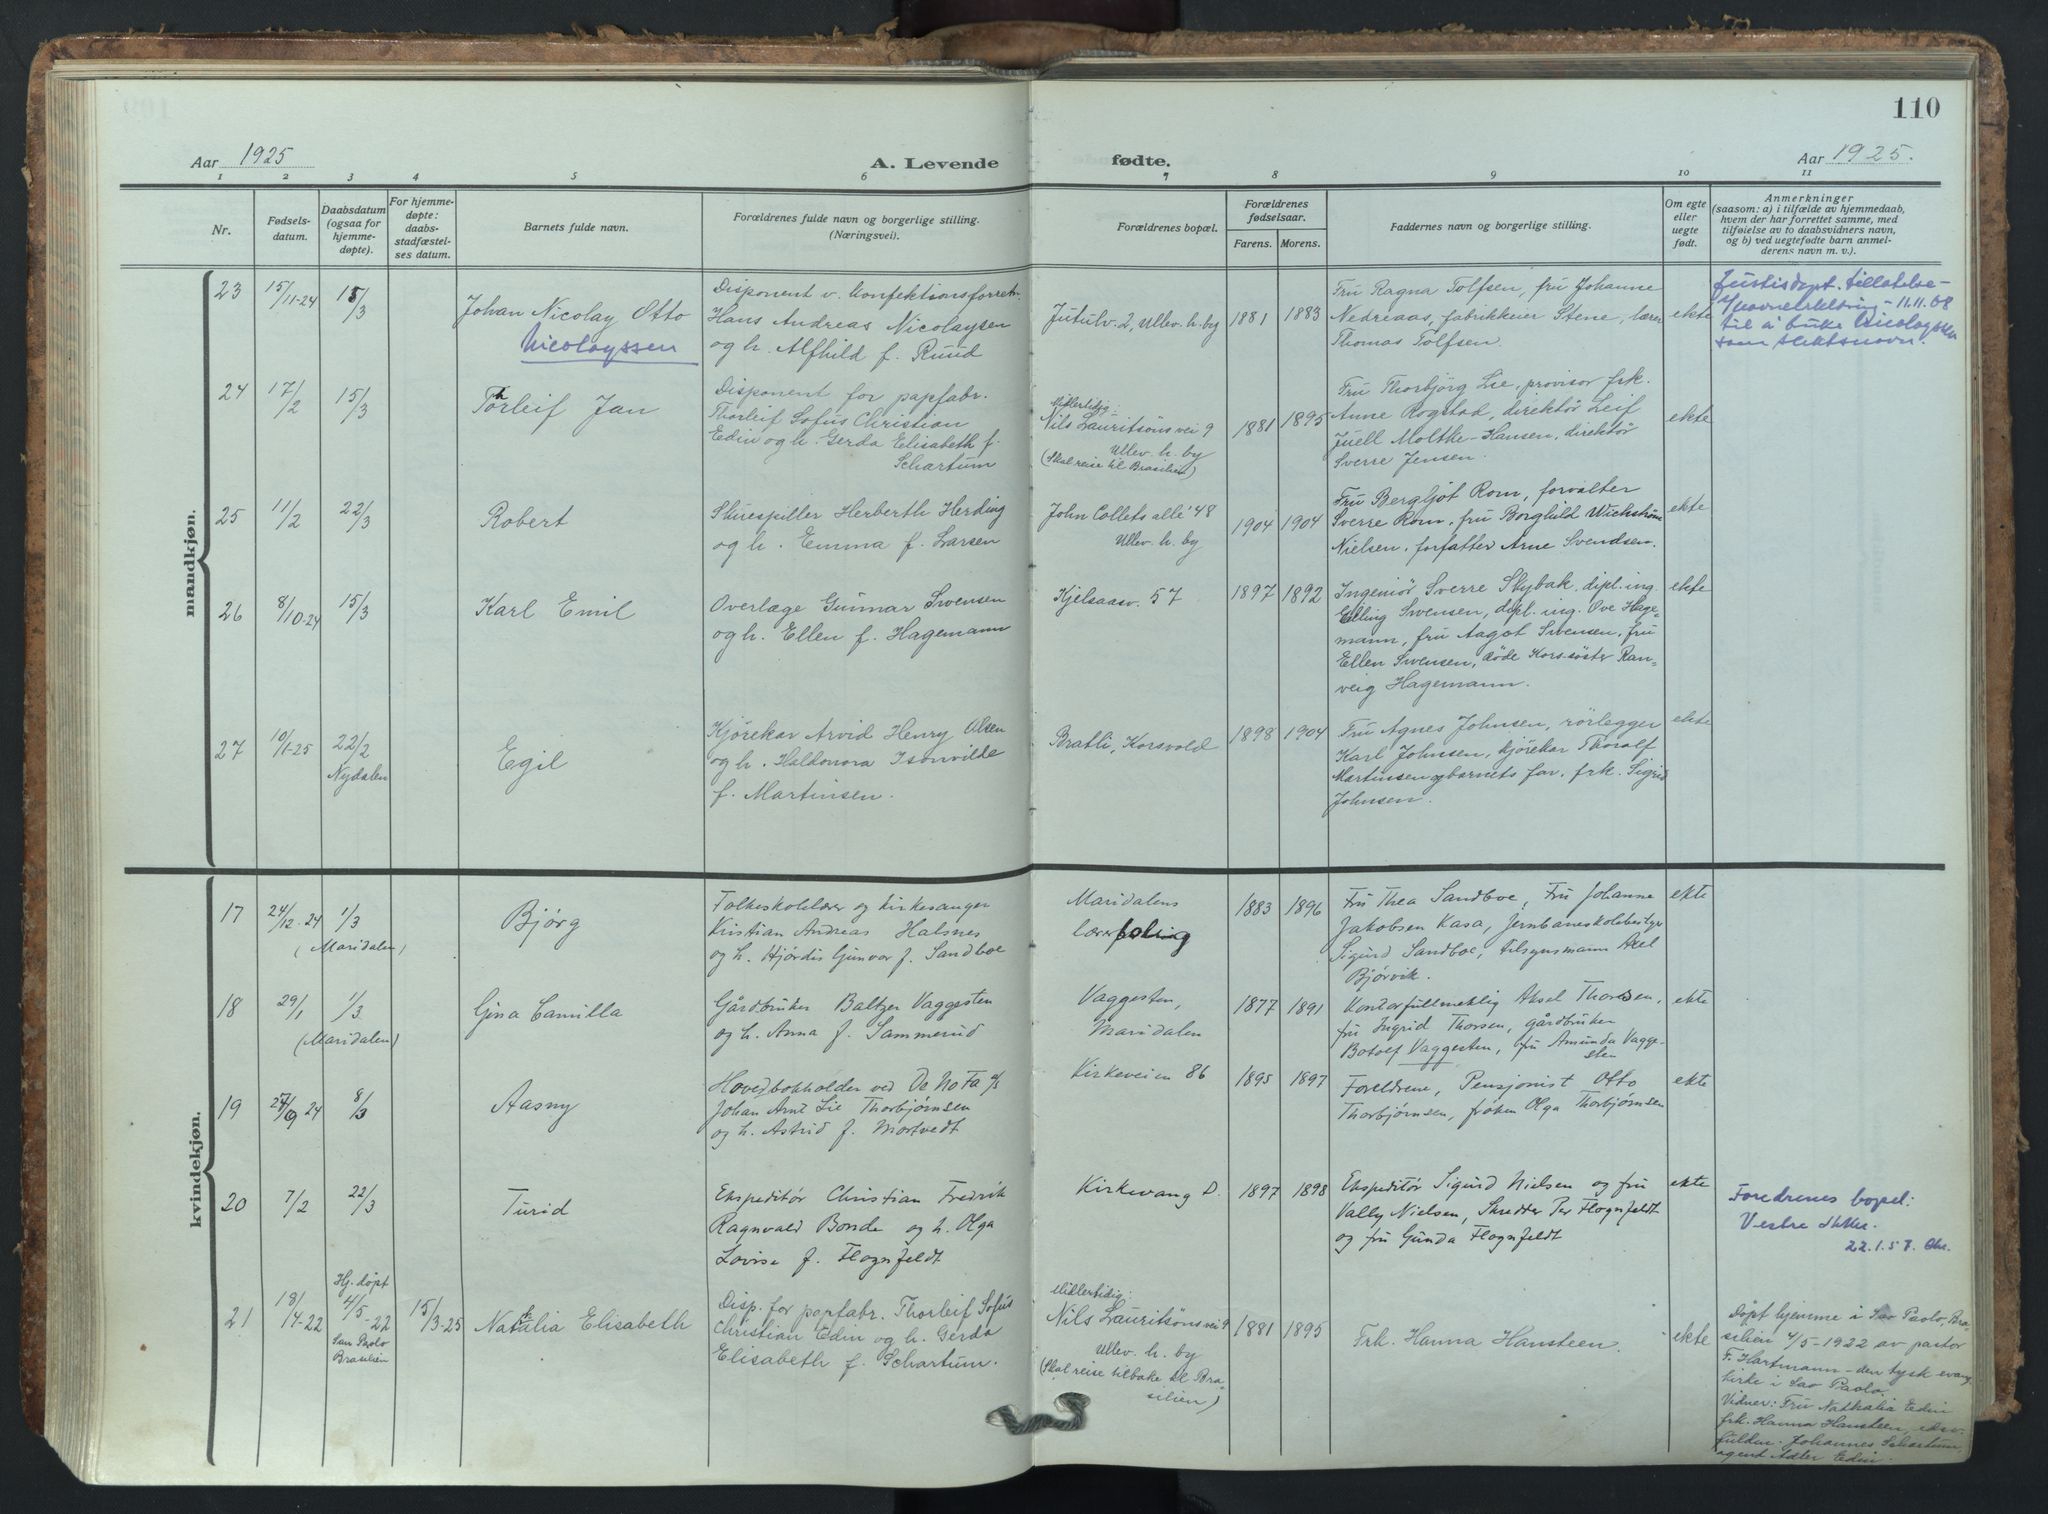 110
Aar 1925
A. Levende
fødte.
Aar 1925.
1 2 3 4 5 6 7 8 9 10 11
Nr.
Fødsels-
datum.
Daabsdatum
(ogsaa for
hjemme-
døpte).
For hjemme-
døpte:
daabs-
stadfæstel-
ses datum.
Barnets fulde navn.
Forældrenes fulde navn og borgerlige stilling.
(Næringsvei).
Forældrenes bopæl.
Forældrenes
fødselsaar.
Farens. Morens.
Faddernes navn og borgerlige stilling.
Om egte
eller
uegte
født.
Anmerkninger
(saasom: a) i tilfælde av hjemmedaab,
hvem der har forrettet samme, med
tilføielse av to daabsvidners navn,
og b) ved uegtefødte barn anmel-
derens navn m. v.).
mandkjøn.
23
15/11-24
15/3
Johan Nicolay Otto
Nicolayssen
Disponent v. Konfektionsforretn.
Hans Andreas Nicolaysen
og h. Alfhild f. Ruud
Jutulv. 2, Ullev. h. by
1881
1883
Fru Ragna Tolfsen, fru Johanne
Nedreaas, fabrikkeier Stene, lærer
Thomas Tolfsen.
ekte
Justisdept. tillatelse-
navneerklæring - 11.11.68
til å bruke Nicolayssen
som slektsnavn.
24
17/2
15/3
Thorleif Jan
Disponent for papfabr.
Thorleif Sofus Christian
Edin og h. Gerda Elisabeth f.
Schartum
Midlertidig:
Nils Lauritsöns vei 9
Ullev. h. by
(Skal reise til Brasilien)
1881
1895
Fru Thorbjörg Lie, provisor frk.
Anne Rogstad, direktör Leif
Juell Moltke-Hansen, direktör
Sverre Jensen.
ekte
25
11/2
22/3
Robert
Skuespiller Herberth Herding
og h. Emma f. Larsen
John Collets alle' 48
Ullev. h. by
1904
1904
Fru Bergljot Rom, forvalter
Sverre Rom, fru Borghild Wichstrøm
Nielsen, forfatter Arne Svendsen.
ekte
26
8/10-24
15/3
Karl Emil
Overlæge Gunnar Swensen
og h. Ellen f. Hagemann
Kjelsaasv. 57
1897
1892
Ingeniör Sverre Skybak, dipl. ing.
Elling Swensen, dipl. ing. Ove Hage=
mann, fru Aagot Swensen, fru
Ellen Swensen, röde Kors söster Ran=
veig Hagemann.
ekte
27
10/1-25
22/2
Nydalen
Egil
Kjörekar Arvid Henry Olsen
og h. Haldonora Isonvilde
f. Martinsen.
Bratli, Korsvold
1898
1904
Fru Agnes Johnsen, rörlegger
Karl Johnsen, kjörekar Thoralf
Martinsen og barnets far, frk. Sigrid
Johnsen.
ekte
kvindekjøn.
17
24/12-24
1/3
(Maridalen)
Bjørg
Folkeskolelærer og kirkesanger
Kristian Andreas Halsnes
og h. Hjørdis Gunvor f. Sandboe
Maridalens
lærerbolig
1883
1896
Fru Thea Sandboe, Fru Johanne
Jakobsen Kasa, Jernbaneskolebestyr
Sigurd Sandboe, tilsynsmann Axel
Bjørvik.
ekte
18
29/1
1/3
(Maridalen)
Gina Camilla
Gårdbruker Baltzer Vaggesten
og h. Anna f. Sammerud
Vaggesten,
Maridalen
1877
1891
Kontorfullmektig Aksel Thorsen,
fru Ingrid Thorsen, gårdbruker
Botolf Vaggesten, fru Amunda Vagge-
sten
ekte
19
27/9 24
8/3
Aasny
Hovedbokholder ved De No Fa a/s
Johan Arnt Lie Thorbjørnsen
og h. Astrid f. Mortvedt
Kirkeveien 86
1895
1897
Foreldrene, Pensjonist Otto
Thorbjørnsen, frøken Olga Thorbjørnsen
ekte
20
7/2
22/3
Turid
Ekspeditør Christian Fredrik
Ragnvald Bonde og h. Olga
Lovise f. Flognfeldt
Kirkevang D.
1897
1898
Ekspeditør Sigurd Nielsen og fru
Vally Nielsen, Skredder Per Flognfeldt
og fru Gunda Flognfeldt
ekte
Foredrenes bopel:
Vestre Aker.
22.1.57.
21
18/4-22
Hj. døpt
4/5-22
Sao Paolo
Brasilien
15/3-25
Nathalia Elisabeth
Disp. for papfabr. Thorleif Sofus
Christian Edin og h. Gerda
Elisabeth f. Schartum.
Midlertidig:
Nils Lauritsöns vei 9
Ullev. h. by
(Skal reise tilbake til Bra=
silien)
1881
1895
Frk. Hanna Hansteen.
ekte
Döpt hjemme i Sao Paolo, Bra=
silien 4/5-1922 av pastor
F. Hartmann - den tysk evang.
kirke i Sao Paolo.
Vidner: Fru Nathalia Edin
frk. Hanna Hansteen,
Johannes Schartum
agent Adler Edin.